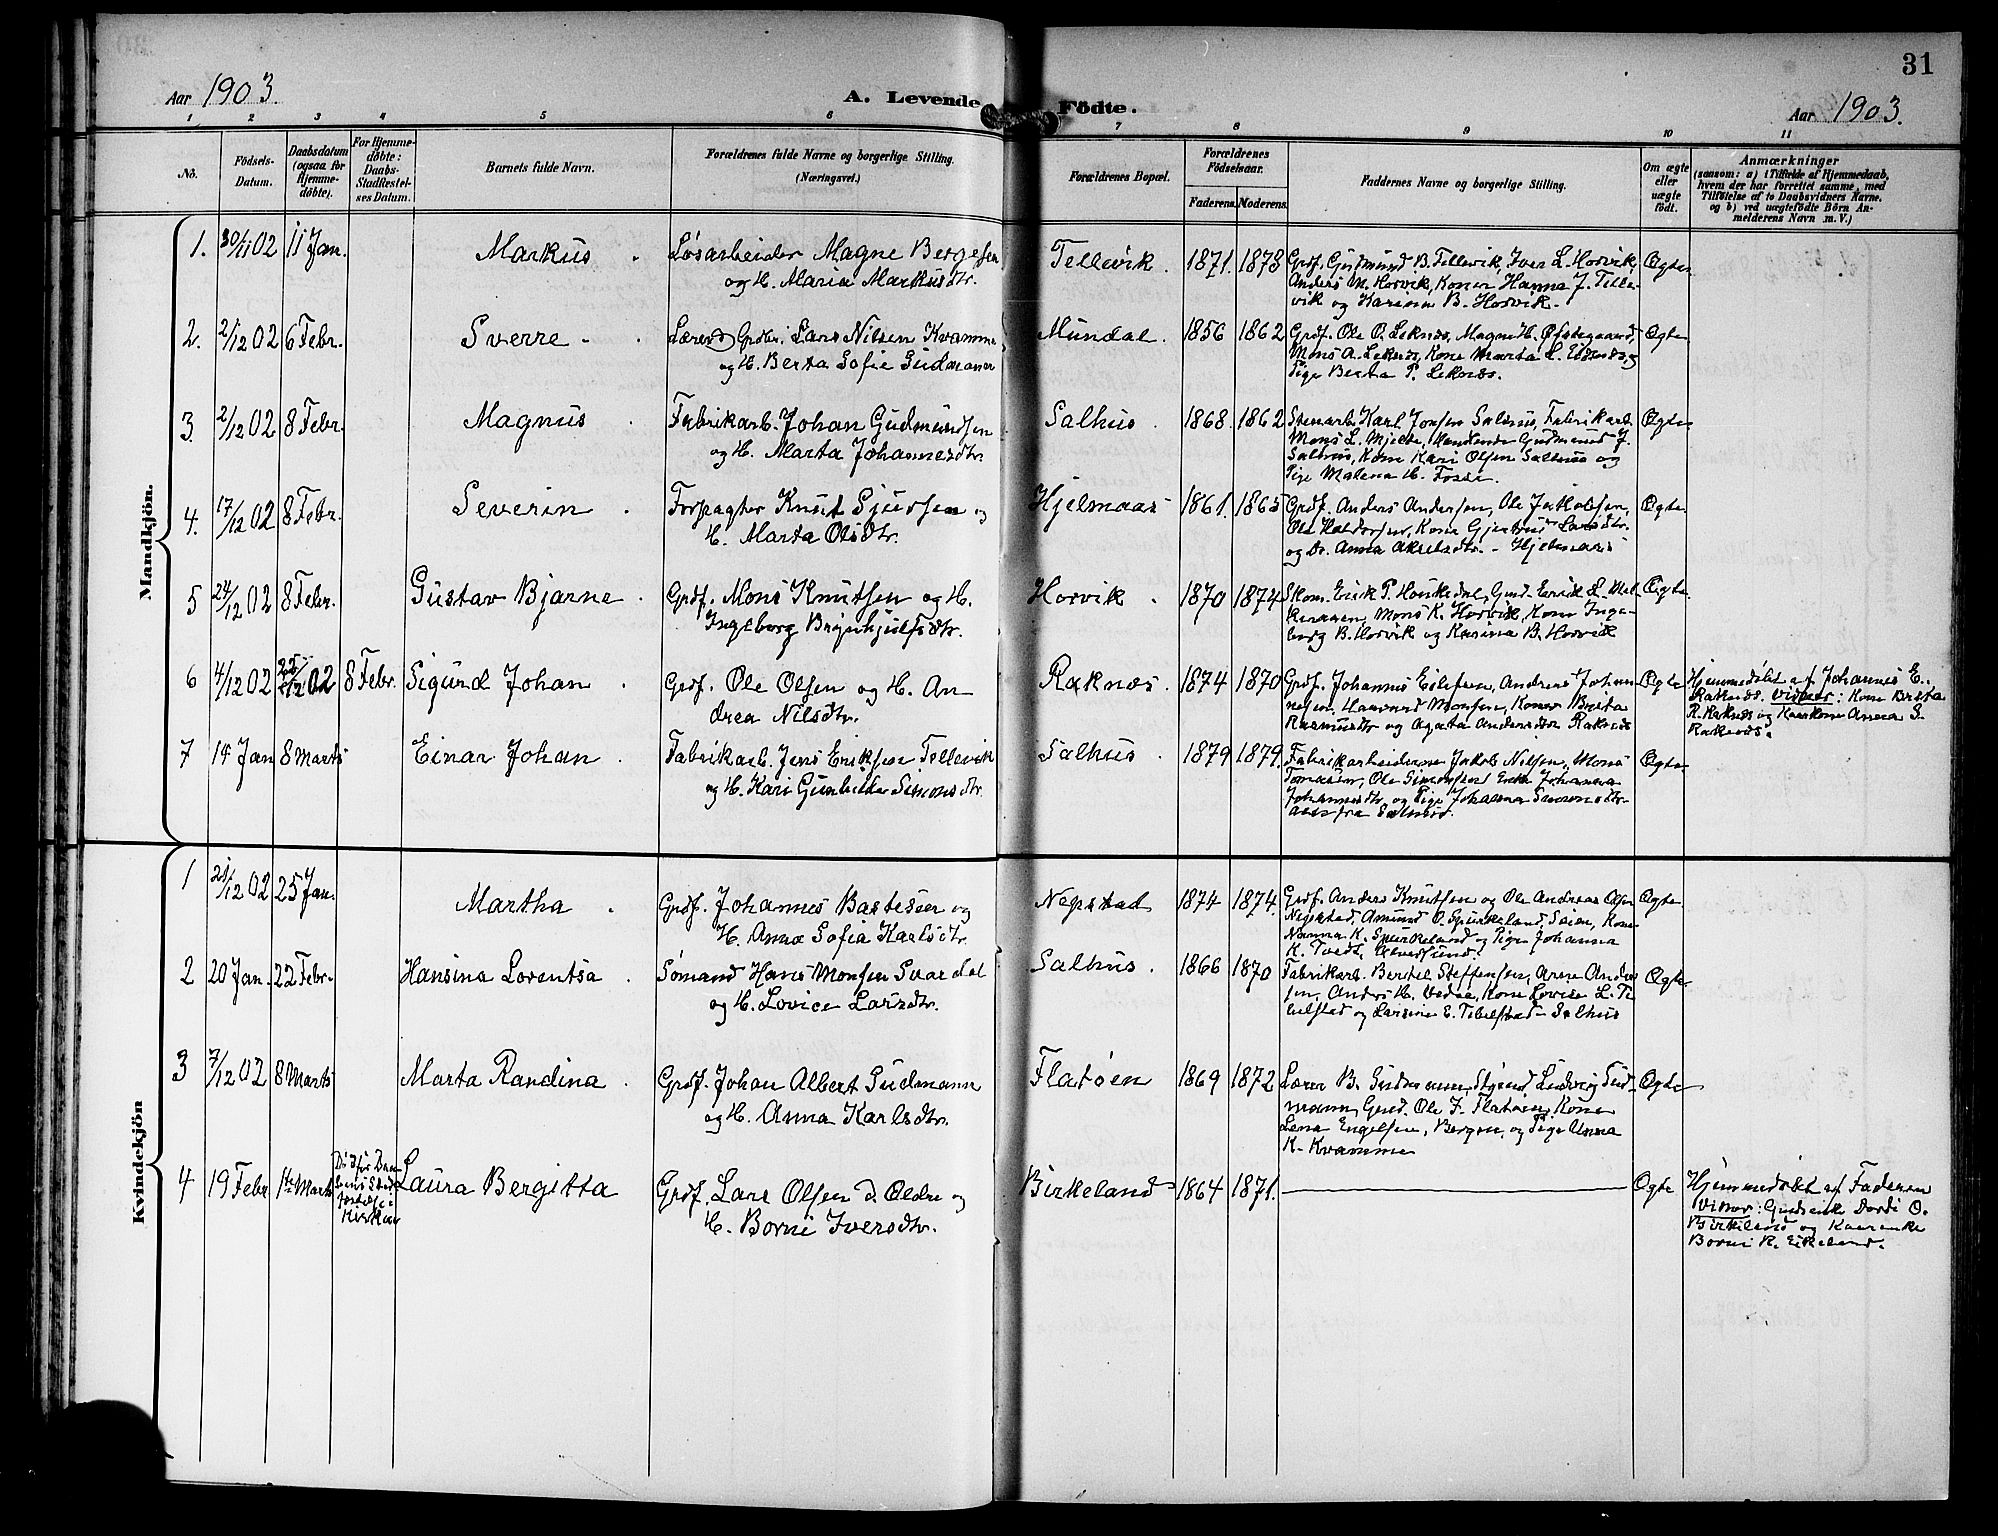 31
Aar 1903.
A. Levende Födte.
Aar 1903.
1 2 3 4 5 6 7 8 9 10 11
No.
Födsels-
Datum.
Daabsdatum
(ogsaa for
Hjemme-
döbte).
For Hjemme-
döbte:
Daabs-
Stadfestel-
ses Datum.
Barnets fulde Navn.
Forældrenes fulde Navne og borgerlige Stilling.
(Næringsvei.)
Forældrenes Bopæl.
Forældrenes
Födselsaar.
Faderens. Moderens.
Faddernes Navne og borgerlige Stilling.
Om ægte
eller
uægte
födt.
Anmærkninger
(saasom: a) i Tilfælde af Hjemmedaab,
hvem der har forrettet samme, med
Tilföielse af to Daabsvidners Navne.
og b) ved uægtefödte Börn An-
melderens Navn m. V.)
Mandkjön.
1. 30/11 02 11 Jan. Markus Løsarbeider Magne Bergesen
og H. Maria Markusdtr.
Tellevik. 1871. 1878 Grdf. Gudmund B. Tellevik, Iver L. Horvik, Ægte
Anders M. Horvik, Koner Hanna J. Telle-
vik og Karina B. Horvik.
2. 2/12 02 6 Febr. Sverre Lærer og Grdbr. Lars Nilsen Kvamme
og H. Berta Sofie Gudmann
Mundal. 1856 1862 Grdf. Ole O. Leknes, Magne H. Øfstegaard, Ægte
Mons A. Leknes, Kone Marta L. og
Pige Berta P. Leknes.
3. 2/12 02 8 Febr. Magnus Fabrikarb. Johan Gudmundsen
og H. Marta Johannesdtr.
Salhus. 1868. 1862 Stenarb. Karl Jonsen Salhus, Fabrikarb. Ægte
Mons L. Mjelde, Gudmund J.
Salhus, Kone Kari Olsen Salhus og
Pige Malena H. Fosse.
4. 17/12 02 8 Febr. Severin Forpagter Knut Sjursen og
H. Marta Olsdtr.
Hjelmaas 1861. 1865 Grdf. Anders Andersen, Ole Jakobsen, Ægte
Ole Haldorsen, Kone Gjertrud Larsdtr.
og Dr. Anna Akselsdtr. - Hjelmaas
5 24/12 02 8 Febr. Gustav Bjarne Grdf. Mons Knutsen og H.
Ingeborg Brynhjulfsdtr.
Horvik. 1870 1874 Skom. Erik P. Haukedal, Gmd. Erik L. Mel-
Mons K. Horvik, Kone Inge-
borg B. Horvik og Karina B. Horvik
Ægte.
6 4/12 02 25/12 02 8 Febr. Sigurd Johan Grdf. Ole Olsen og H. An
drea Nilsdtr.
Raknes. 1874 1870 Grdf. Johannes Eilefsen, Andreas Johan Ægte
nesen, Haavard Monsen, Koner Brita
Rasmusdtr og Agata Andersdtr Raknes
Hjemmedøbt af Johannes E.
Raknes. Vidner: Kone Brita
R. Raknes og Kaarkone Anna S.
Raknes.
7 14 Jan 8 Marts Einar Johan Fabrikarb. Jens Eriksen Tellevik
og H. Kari Gunhilda Simonsdtr.
Salhus 1879 1879. Fabrikarbeiderne Jakob Nilsen, Mons Ægte
Tomasen, Ole Simonsen Enke Johanna
Johannesdtr. og Pige Johanna Simonsdtr.
alle fra Salhus.
Kvindekjön
1 21/12 02 25 Jan. Martha Grdf. Johannes Bastesen og
H. Anna Sofia Karlsdtr.
Nepstad 1874 1874. Grdf. Anders Knutsen og Ole Andreas Olsen Ægte
Nepstad, Amund O. Spurkeland, Seim, Kone
Nanna K. Spurkeland og Pige Johanna
K. Tvedt, Alverdsund.
2 20 Jan. 22 Febr. Hansina Lorentsa Sømand Hans Monsen Svardal
og H. Lovice Larsdtr.
Salhus 1866 1870 Fabrikarb. Bertel Steffensen, Arne Andre Ægte
sen, Anders H. Vedaa, Kone Lovise L. Te
belstad og Larsine E. Tebelstad - Salhus
3 7/12 02 8 Marts Marta Randina Grdf. Johan Albert Gudmann
og H. Anna Karlsdtr.
Flatøen 1869 1872 Lærer B. Gudmann, Styrmd Ludvig Gud- Ægte
mann, Gmd. Ole J. Flatøen, Kone
Lena Engelsen, Bergen, og Pige Unna
K. Kvamme
4 19 Febr. 1ste Marts Død før Daa
bens Stad
festelse i
Kirken
Laura Bergitta Grdf. Lars Olsen d. Ældre og
H. Borni Iversdtr.
Birkeland 1864 1871. Ægte Hjemmedøbt af Faderen
Vidner: Gmdsenke Dordi O.
Birkeland og Kaarenke
Borni R. Eikeland.